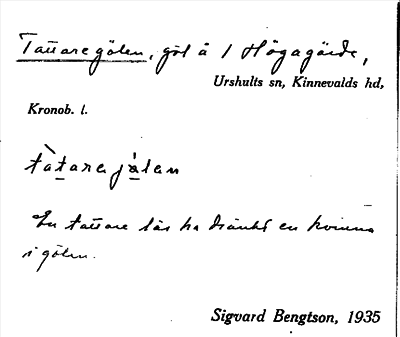 Tattaregölen, göl å 1 Högagärde,
Urshults sn, Kinnevalds hd,
Kronob. l.
tàtarejálen
En tattare lär ha dränkt en kvinna
i gölen.
Sigvard Bengtson, 1935